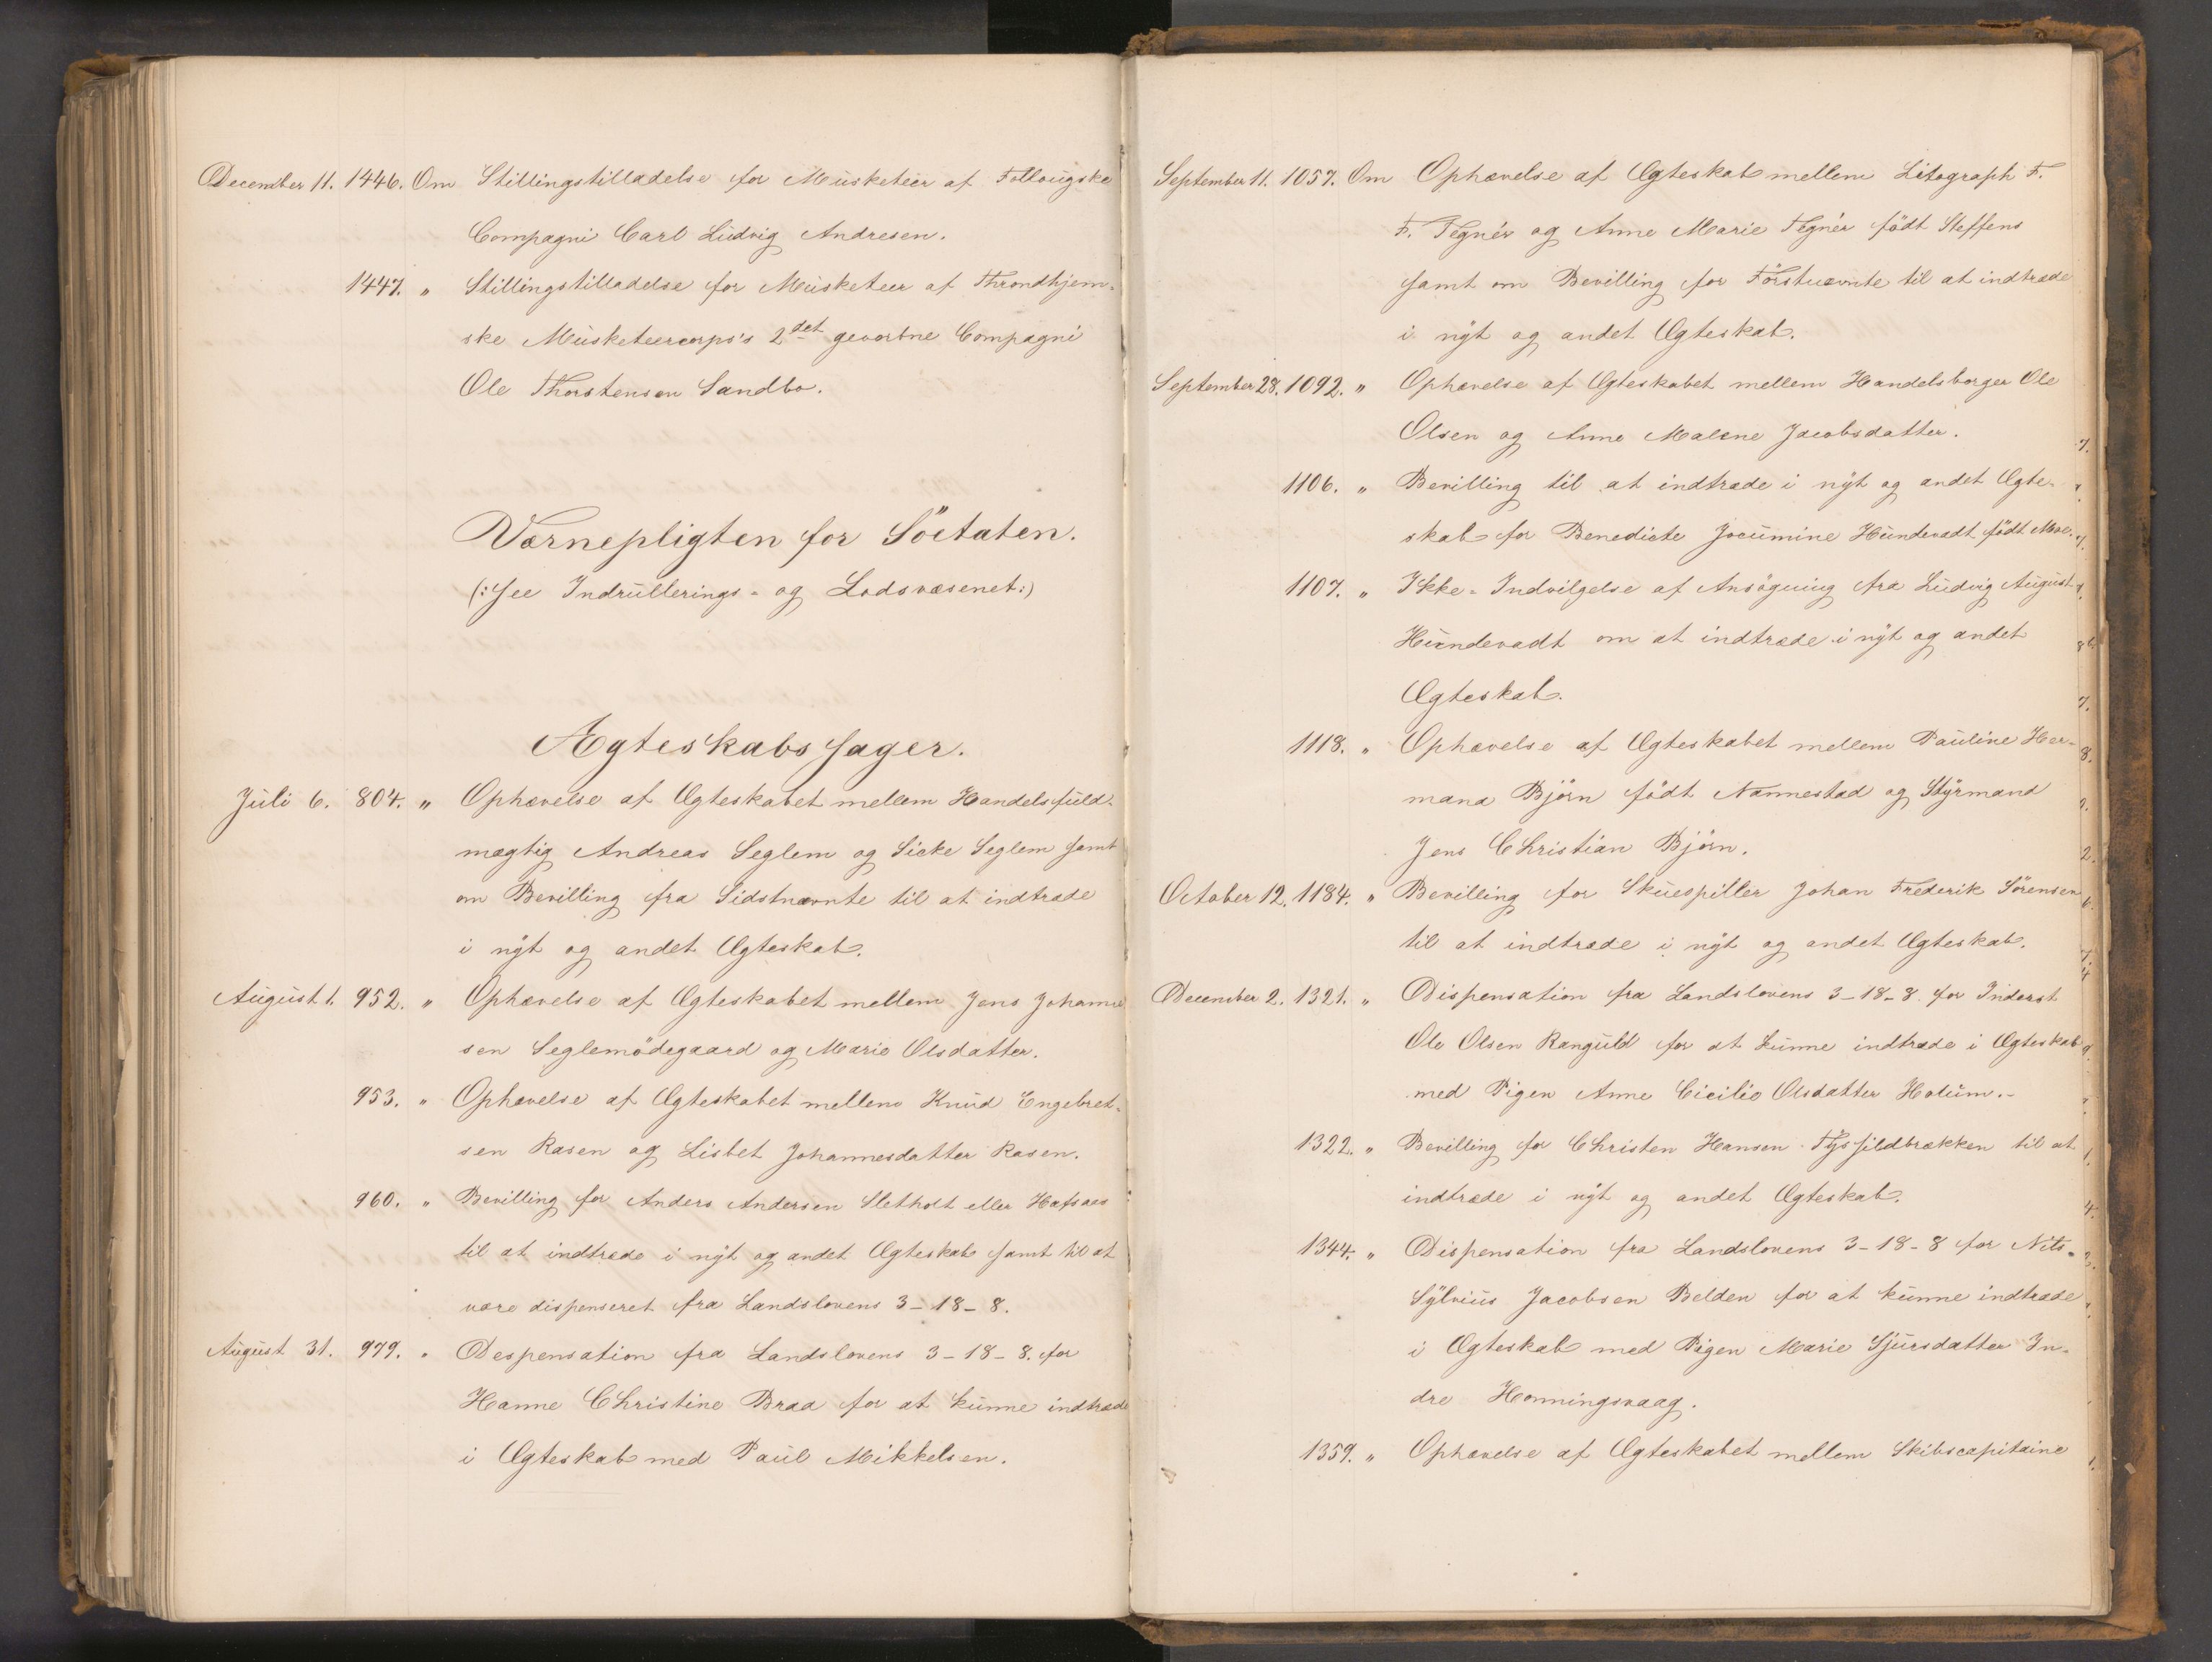 December 11. 1446. Om Stillingstilladelse for Musketeer af Follougske
Compagni Carl Ludvig Andresen.
1447. " Stillingstilladelse for Musketeer af Throndhjem-
ske Musketeercorps's 2det gevorbne Compagni
Ole Thorstensen Sandbo.
Værnepligten for Söetaten.
(: See Indrullerings- og Lodsvæsenet:)
Ægteskabssager.
Juli 6. 804. " Ophævelse af Ægteskabet mellem Handelsfuld-
mægtig Andreas Seglem og Sicke Seglem samt
om Bevilling fra Sidstnævnte til at indtræde
i nyt og andet Ægteskab.
August 1. 952. " Ophævelse af Ægteskabet mellem Jens Johanne
sen Seglemödegaard og Marie Olsdatter.
953. " Ophævelse af Ægteskabet mellem Knud Engebret-
sen Rasen og Lisbet Johannesdatter Rasen.
960. " Bevilling for Anders Andersen Sletholt eller Hafsaes
til at indtræde i nyt og andet Ægteskab samt til at
være dispenseret fra Landslovens 3-18-8.
August 31. 979. " Despensation fra Landslovens 3-18-8. for
Hanne Christine Braa for at kunne indtræde
i Ægteskab med Paul Mikkelsen.
September 11. 1057. Om Ophævelse af Ægteskab mellem Litograph F.
F. Tegnér og Anne Marie Tegnér födt Steffens
samt om Bevilling for Förstnævnte til at indtræde
i nyt og andet Ægteskab.
September 28. 1092. " Ophævelse af Ægteskabet mellem Handelsborger Ole
Olsen og Anne Malene Jacobsdatter.
1106. " Bevilling til at indtræde i nyt og andet Ægte-
skab for Benedicte Jocumine Hundevadt födt Moe.
1107. " Ikke-Indvilgelse af Ansögning fra Ludvig August
Hundevadt om at indtræde i nyt og andet
Ægteskab.
1118. " Ophævelse af Ægteskabet mellem Pauline Her-
mana Björn födt Nannestad og Styrmand
Jens Christian Björn.
October 12. 1184. " Bevilling for Skuespiller Johan Frederik Sörensen
til at indtræde i nyt og andet Ægteskab.
December 2. 1321. " Dispensation fra Landslovens 3-18-8. for Inderst
Ole Olsen Ranguld for at kunne indtræde i Ægteskab
med Pigen Anne Cicilie Olsdatter Holum.-
1322. " Bevilling for Christen Hansen Tyssildbrækken til at
indtræde i nyt og andet Ægteskab.
1344. " Dispensation fra Landslovens 3-18-8 for Nils
Sylvius Jacobsen Belden for at kunne indtræde
i Ægteskab med Pigen Marie Sjursdatter In-
dre Honningsvaag.
1359. " Ophævelse af Ægteskabet mellem Skibscapitaine